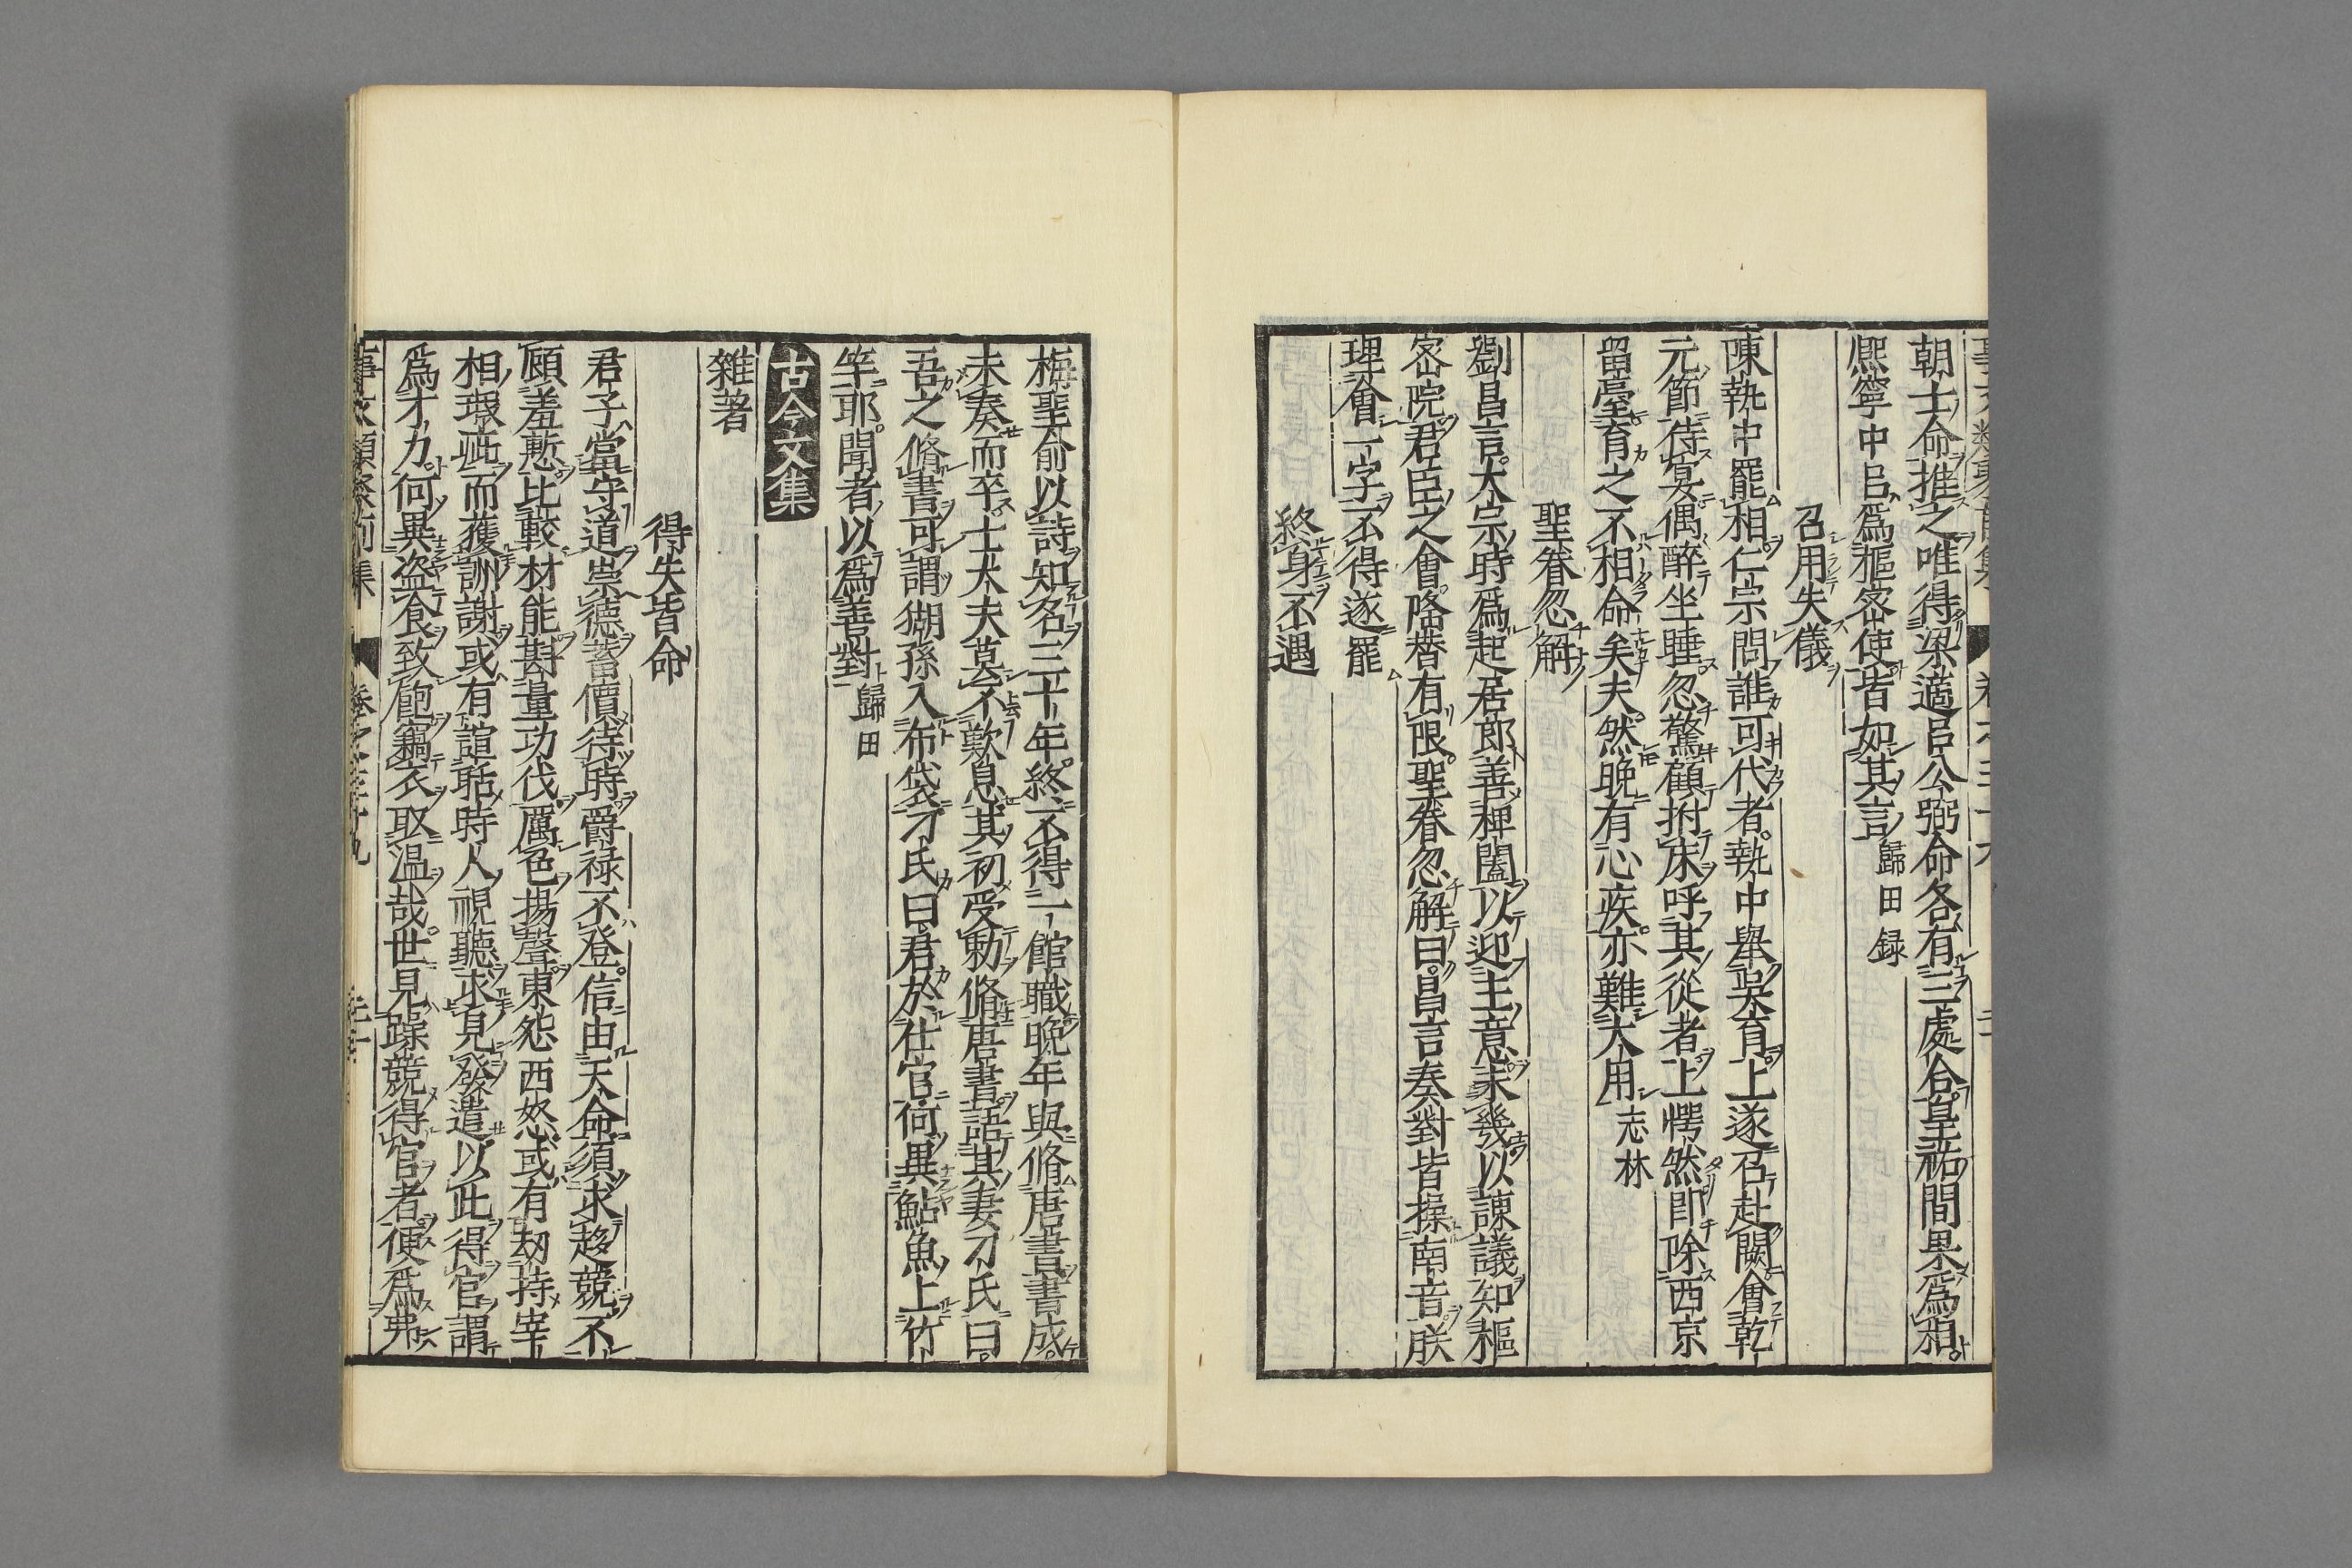 朝士命推之唯得梁適呂公弼命各有三處合皇祐間果爲相
熈寧中呂爲樞密使皆如其言歸田録
召用失儀
陳執中罷相仁宗問誰可代者執中舉吳育上遂召赴闕會乾
元節侍宴偶醉坐睡忽驚顧拊床呼其從者上愕然即除西京
留臺育之不相命矣夫然晩有心疾亦難大用志林
聖眷忽解
劉昌言太宗時爲起居郎善稗闔以迎主意未幾以諌議知樞
密院君臣之會隆替有限聖眷忽解曰昌言奏對皆操南音朕
理會一字不得遂罷
終身不遇
梅聖俞以詩知名三十年終不得一館職晩年與脩唐書書成
未奏而卒士大夫莫不歎息其初受勅脩唐書語其妻刁氏曰
吾之脩書可謂猢孫入布袋刁氏曰君於仕官何異鮎魚上竹
竿耶聞者以爲善對歸田
古今文集
雜著
得失皆命
君子當守道崇德蓄價待時爵禄不登信由天命須求趍競不
顧羞慙比較材能斟量功伐厲色揚聲東怨西怒或有刼持宰
相瑕疵而獲詶謝或有諠聒時人視聽求見發遣以此得官謂
爲才力何異盗食致飽竊衣取温哉世見躁競得官者便爲弗